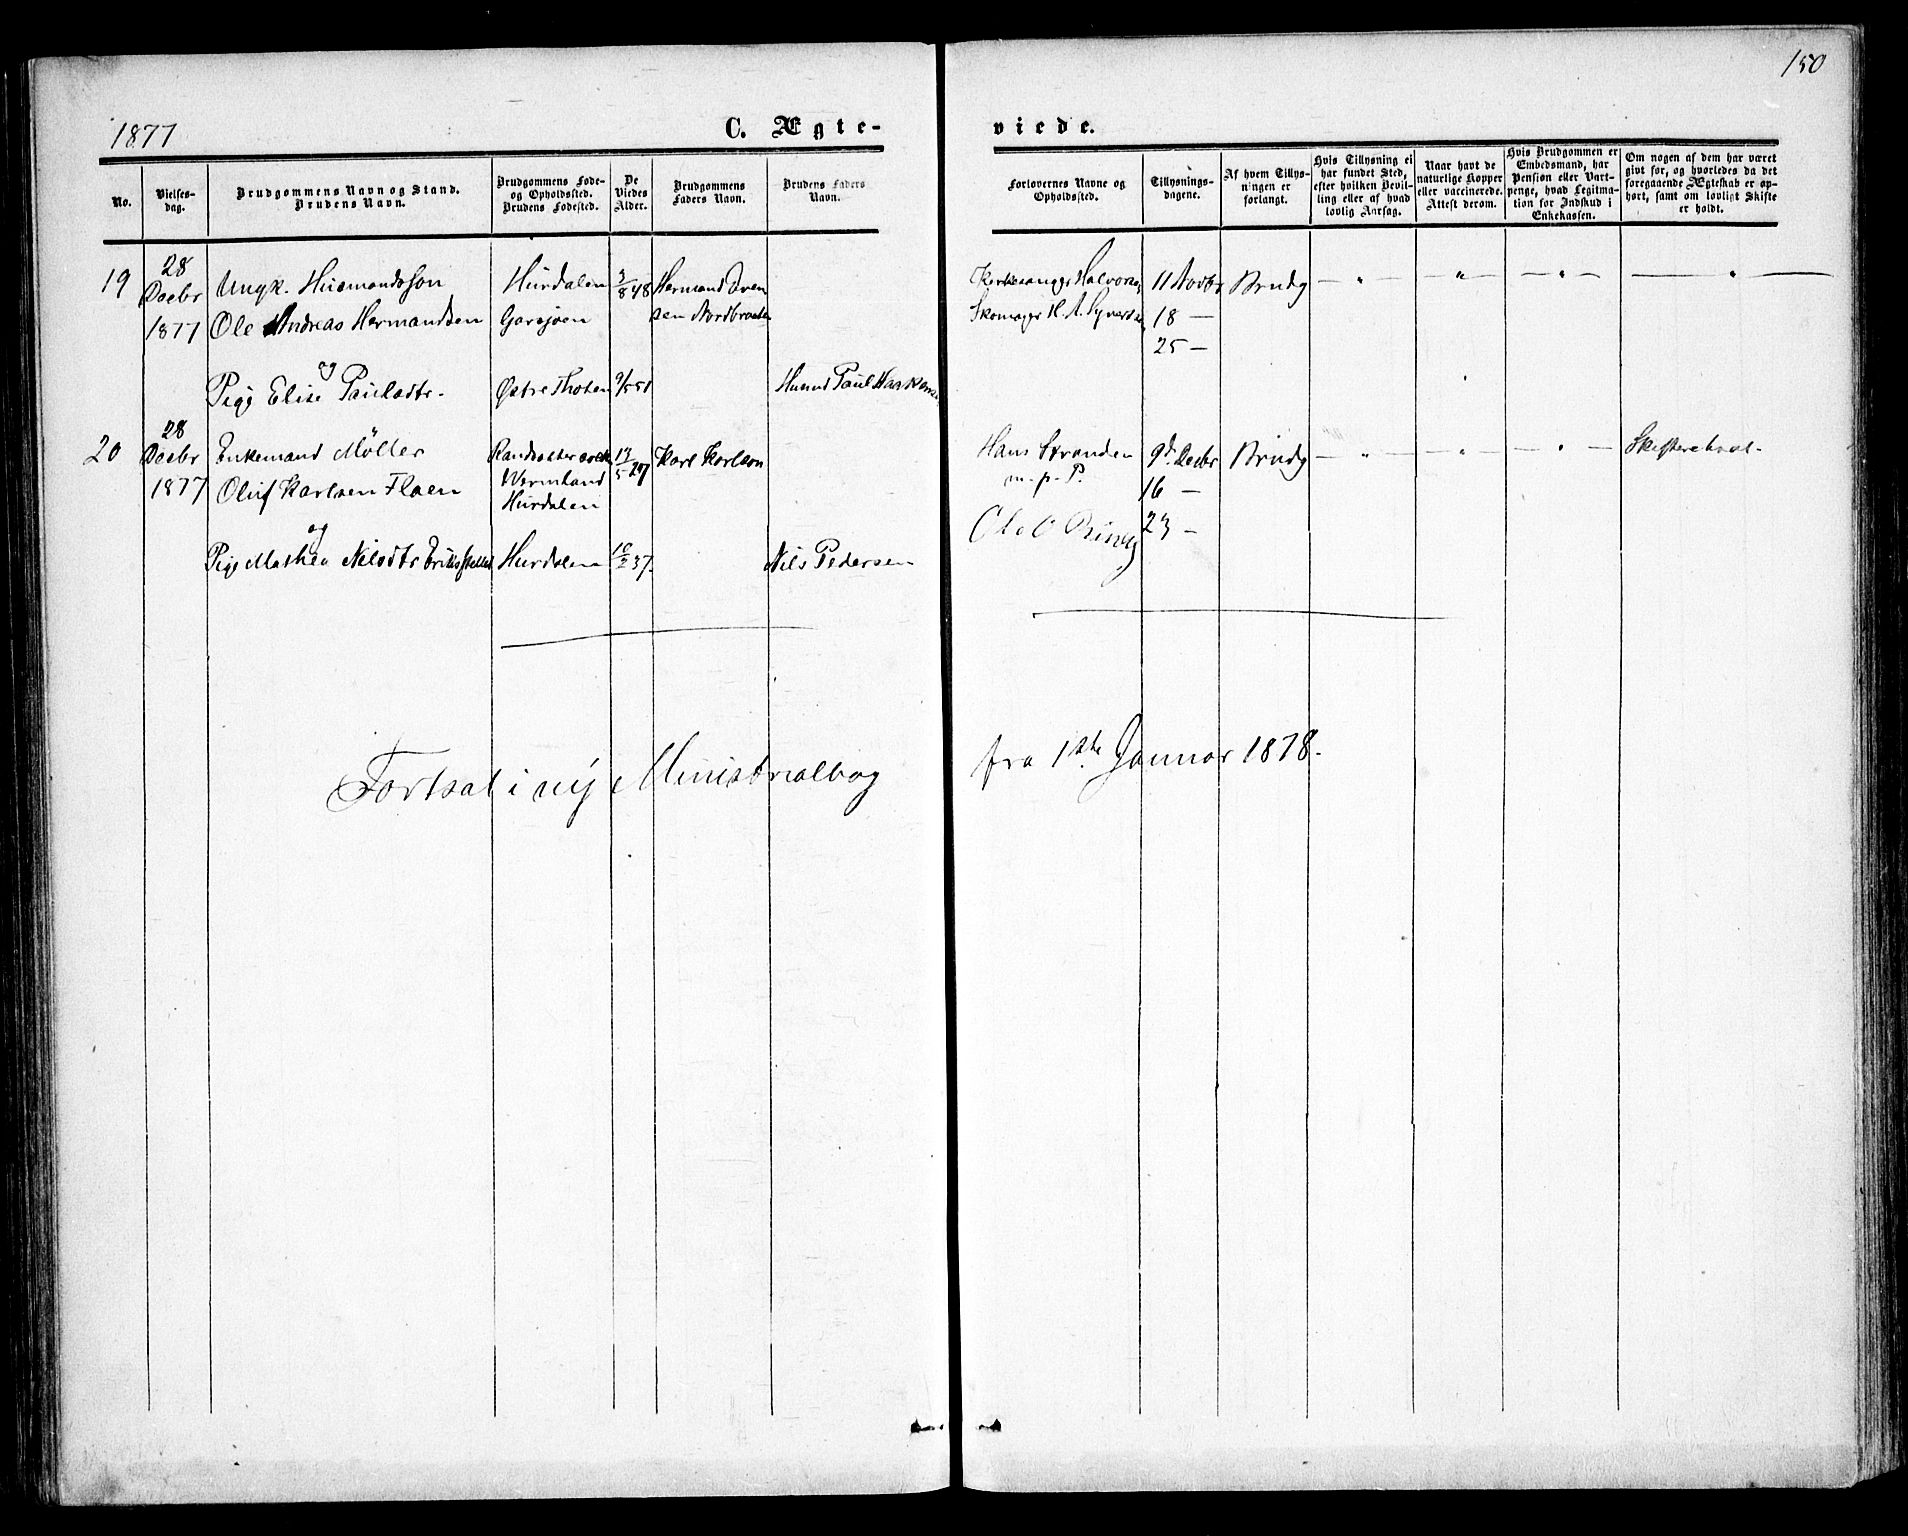 150
1877
C. Ægte-
viede.
No.
Vielses-
dag.
Brudgommens Navn og Stand.
Brudens Navn.
Brudgommens Føde-
og Opholdssted.
Brudens Fødested.
De
Viedes
Alder.
Brudgommens
Faders Navn.
Brudens Faders
Navn.
Forlovernes Navne og
Opholdssted.
Tillysnings-
dagene.
Af hvem Tillys-
ningen er
forlangt.
Hvis Tillysning ei
har fundet Sted,
efter hvilken Bevil-
ling eller af hvad
lovlig Aarsag.
Naar havt de
naturlige Kopper
eller vaccinerede.
Attest derom.
Hvis Brudgommen er
Embedsmand, har
Pension eller Vart-
penge, hvad Legitima-
tion for Indskud i
Enkekassen.
Om nogen af dem har været
givt før, og hvorledes da det
foregaaende Ægteskab er op-
hørt, samt om lovligt Skifte
er holdt.
19
28
Decbr
1877
Ungk. Husmandsson
Ole Andreas Hermandsen
og
Pige Elise Paulsdtr.
Hurdalen
Garsjøen
Østre Thoten
3/8 48
9/5 51
Hermand Even
sen Nordbraaten
Husmd Paul Haakens
Kirkesanger Halvorsen
Skomager H. A. Syversen
11 Novbr
18 —
25 —
Brudg
— " —
— " —
— " —
— " —
20
28
Decbr
1877
Enkemand Møller
Oluf Karlsen Flaen
og
Pige Mathea Nilsdtr
Wermland
Hurdalen
Hurdalen
Karl Karlson
Nils Pedersen
Hans Stranden
m. p. P.
Ole O
9d. Decbr
16 —
23 —
Brudg
— " —
— " —
— " —
Fortsat i ny Ministrialbog
fra 1ste Januar 1878.